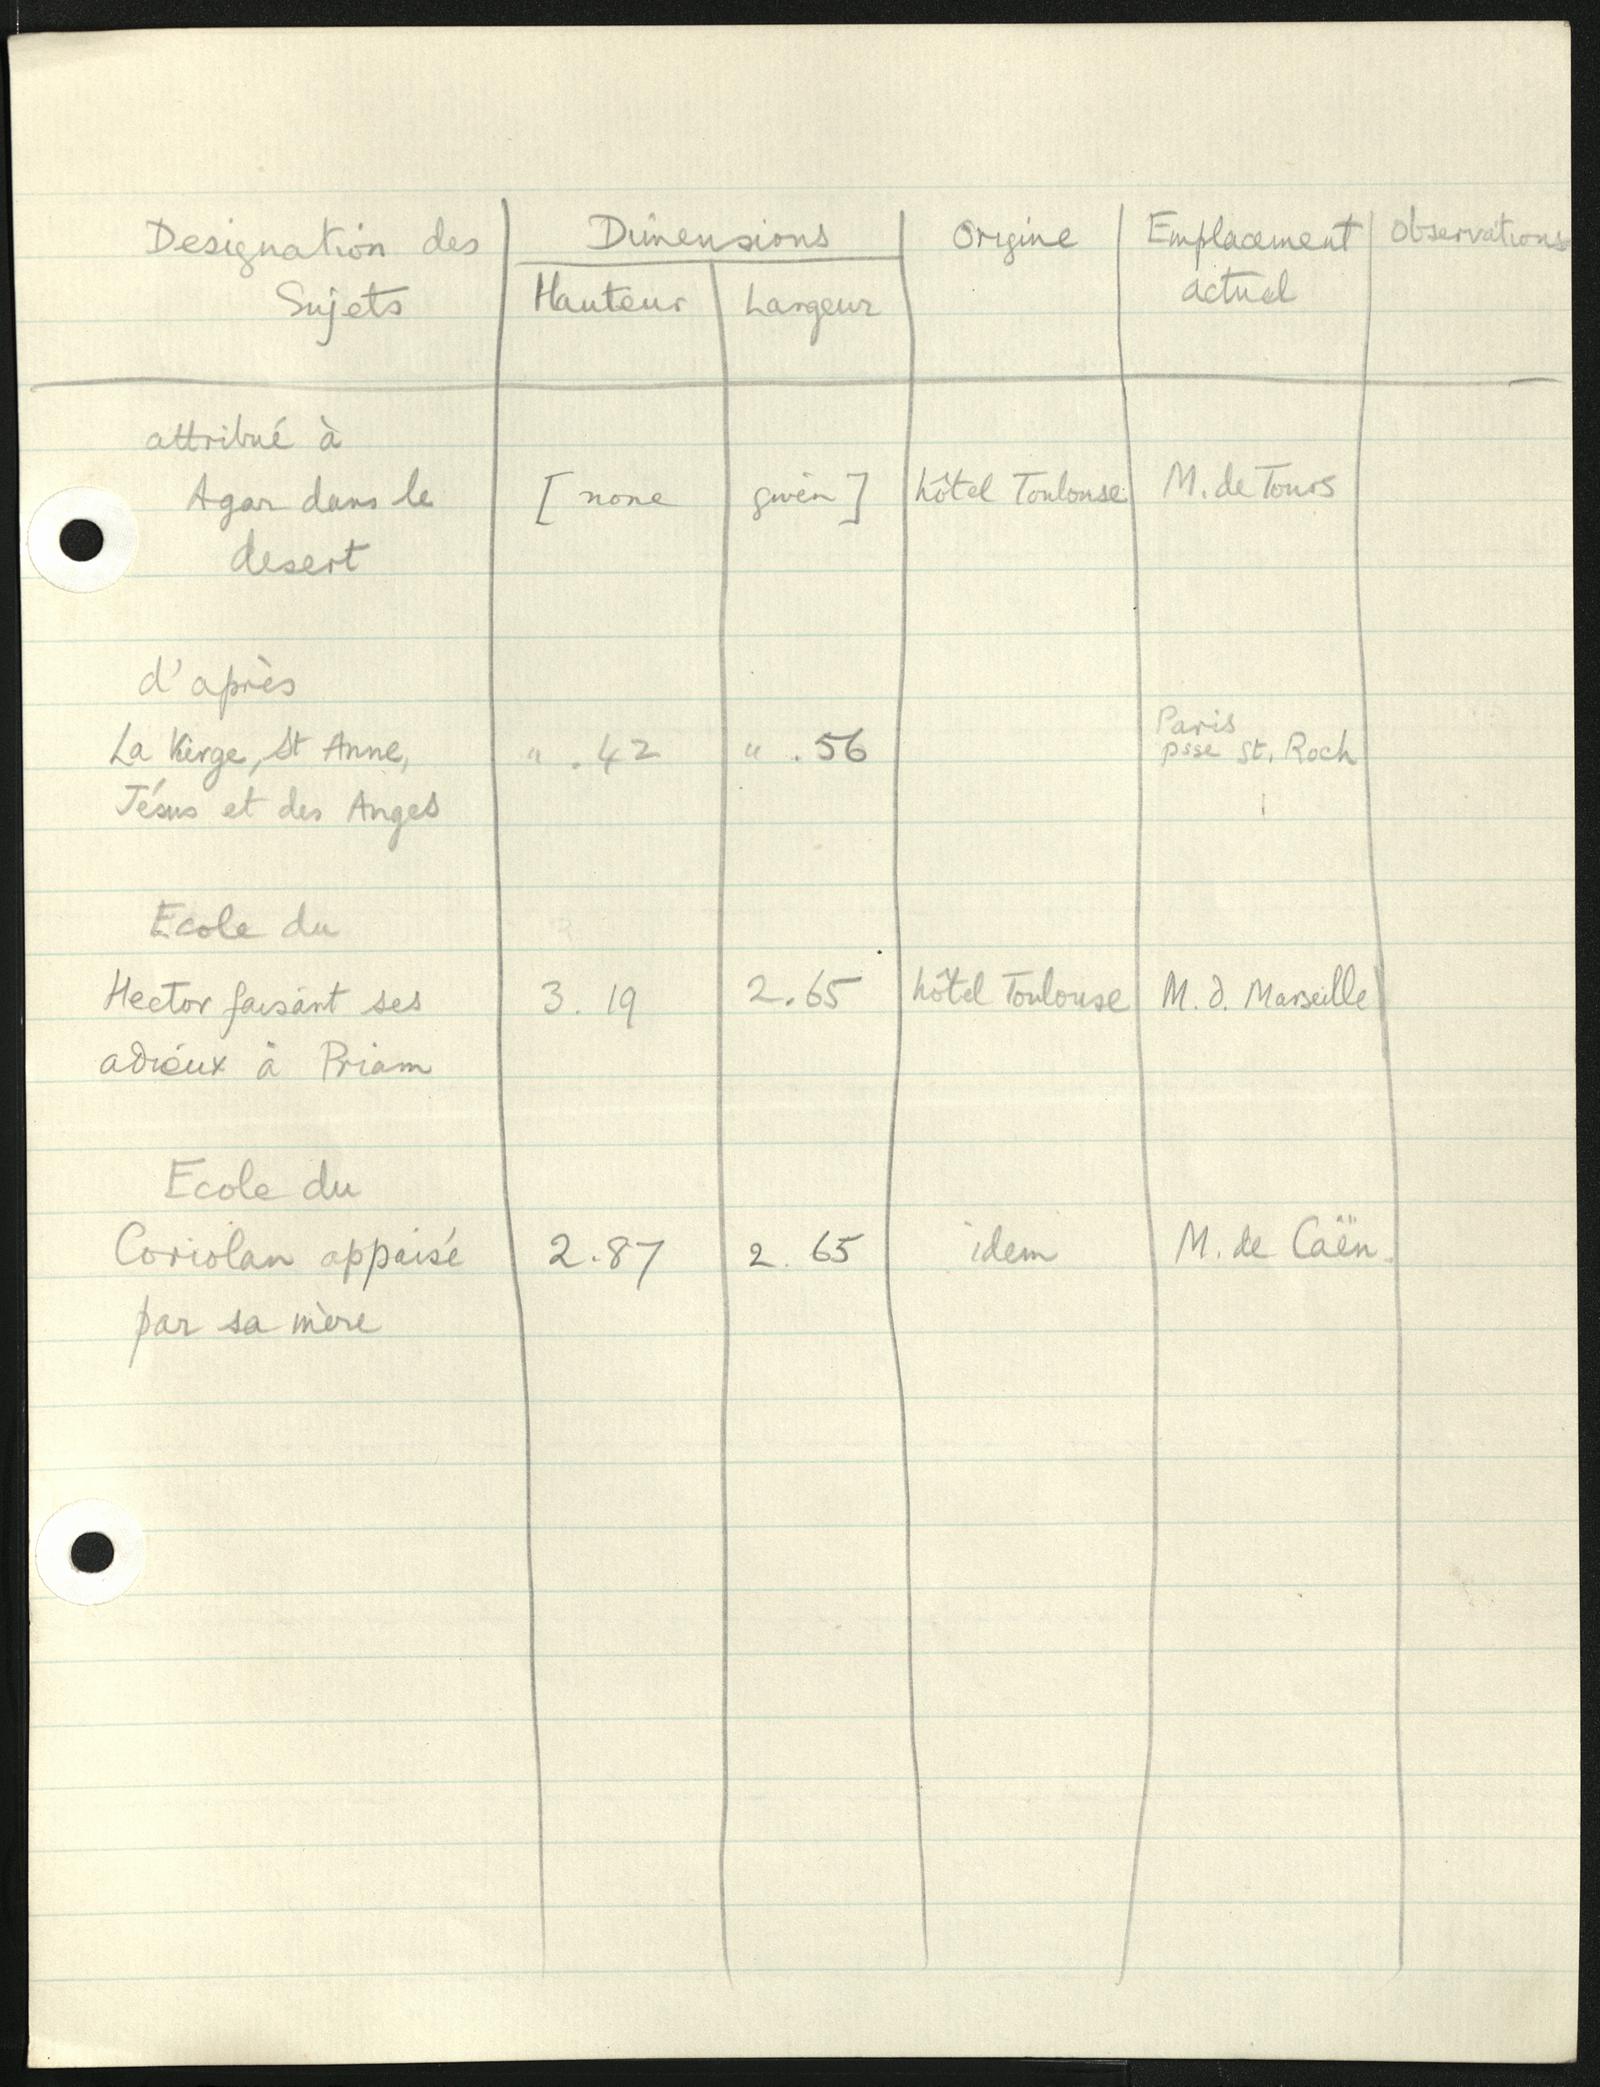 Designation des Sujets | Dimensions | Origine | Emplacement actuel | Observations
Hauteur | Largeur
attribué à
Agar dans le | [ none | given ] | hôtel Toulouse | M. de Tours
desert
d'après
Paris
La Vierge, St Anne, | " .42 | " .56 | psse St. Roch
Jésus et des Anges
Ecole du
Hector faisant ses | 3.19 | 2.65 | hôtel Toulouse | M. d. Marseille
adieux à Priam
Ecole du
Coriolan appaisé | 2.87 | 2.65 | idem | M. de Caën.
par sa mère